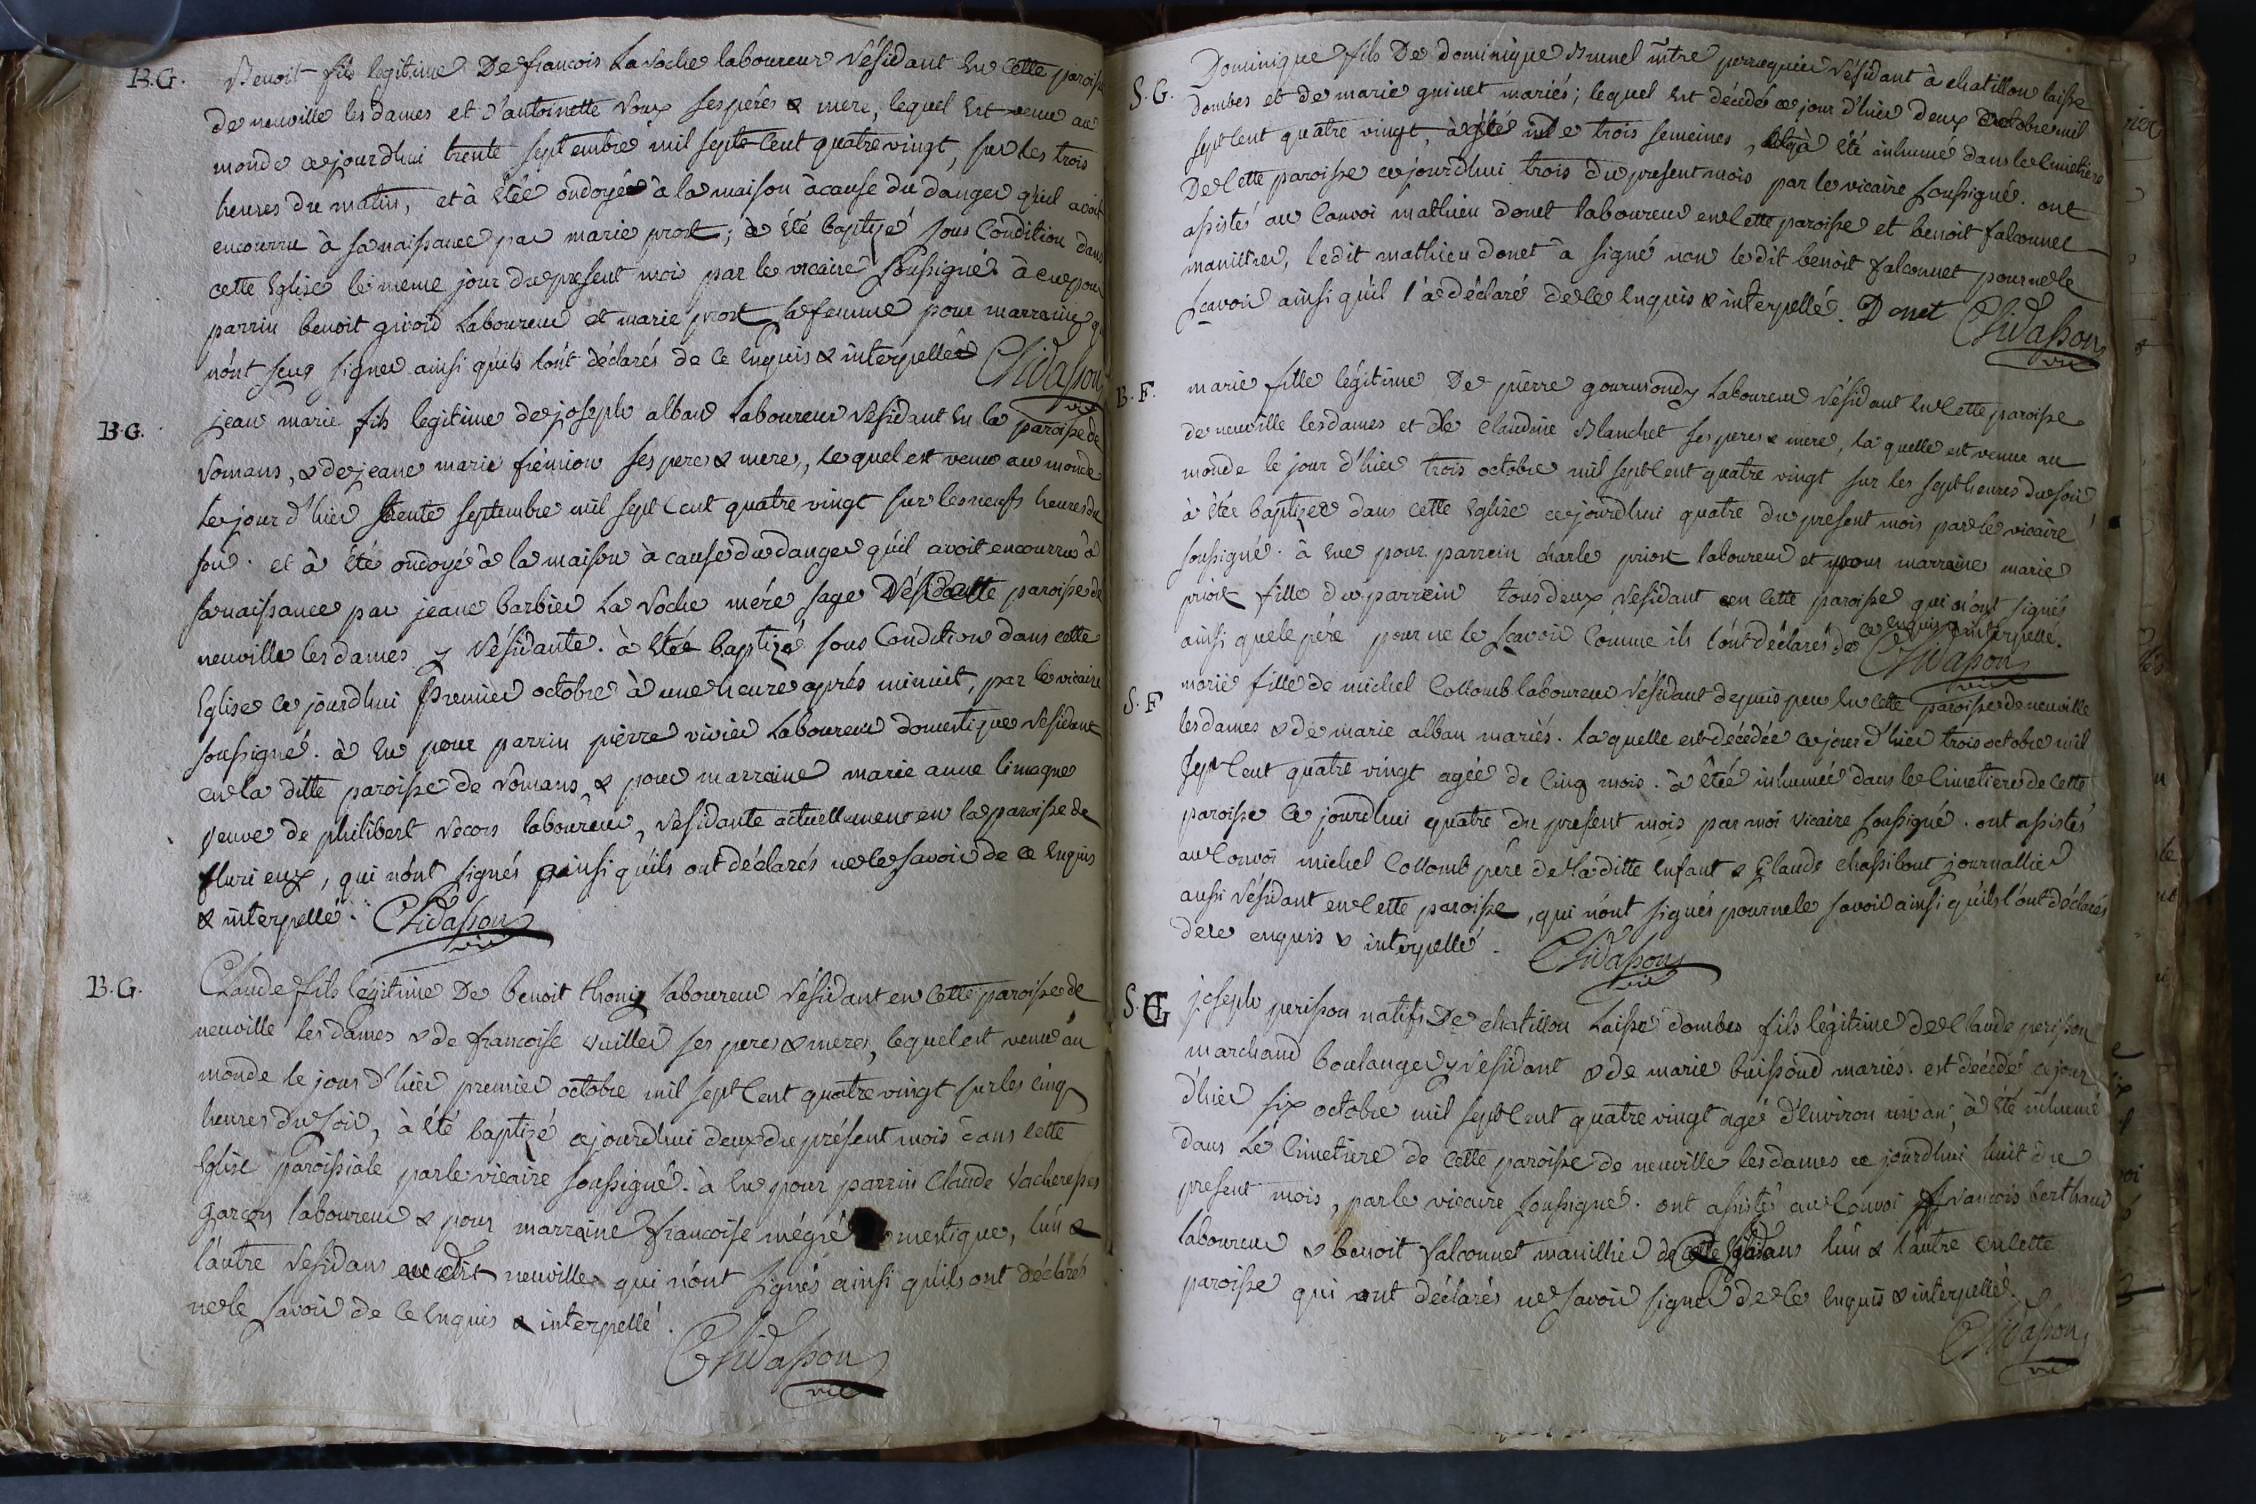 B.G. Benoit fils legitime De francois La roche laboureur résidant en cette paroisse
de neuville les dames et d'antoinette roux ses péres & mere, lequel est venu au
monde cejourdhui trente septembre mil sept cent quatre vingt, sur les trois
heures du matin, et à étée ondoyé à la maison àcause du danger qu'il avoit
encourru à sa naissance par marie prost; à été baptizé sous Condition dans
cette Eglise le meme jour du present mois par le vicaire soussigné à eu pour
parrin benoit girord Laboureur et marie prost sa femme pour marraine qui
n'ont sçus signer ainsi qu'ils l'ont déclarés de ce enquis & interpellés Chidasson
vic
B.G. jean marie fils legitime de joseph alban Laboureur résidant en la paroisse de
romans, & de jeane marie frémion ses peres & meres, lequel est venu au monde
le jour d'hier trente septembre mil sept cent quatre vingt sur les neufs heures du
soir. et à été ondoyé à la maison à cause du danger qu'il avoit encourrus à
sa naissance par jeane barbier La roche mére sage paroisse de
neuville les dames y résidante. à étée baptizé sous Condition dans cette
Eglise ce jourdhui premier octobre à une heure aprés minuit, par le vicaire
soussigné. à eu pour parrin piérre vivier Laboureur domestique résidant
en la ditte paroisse de romans, & pour marraine marie anne limagne
veuve de philibert recors laboureur, résidante actuellement en la paroisse de
flurieux, qui n'ont signés ainsi qu'ils ont déclarés ne le savoir de ce enquis
& interpellé. Chidasson
vic
B.G. Claude fils légitime De benoit thoniz laboureur résidant en cette paroisse de
neuville les dames & de francoise vuiller ses peres & meres, lequel est venu au
monde le jour d'hier premier octobre mil sept cent quatre vingt sur les cinq
heures du soir, à été baptizé cejourdhui deux du présent mois dans cette
Eglise paroissiale par le vicaire soussigné. à eu pour parrin Claude vacheresses
garçon laboureur & pour marraine francoise mégré mestique, l'un &
l'autre residans neuville qui n'ont signés ainsi qu'ils ont déclarés
ne le savoir de ce enquis & interpellé.
Chidasson
vic
S.G. Dominique fils De dominique Brunel mtre perruquier résidant à chatillon laisse
dombes et de marie guinet mariés; lequel est décédés ce jour d'hier deux octobre mil
sept cent quatre vingt, àgé de trois semeines, à été inhumé dans le Cimetiere
De Cette paroisse cejourdhui trois du present mois par le vicaire soussigné. ont
assistés au Convoi mathieu donet laboureur en Cette paroisse et benoit falconnet
manillier, ledit mathieu donet à signé non le dit benoit falconnet pour ne le
sçavoir ainsi qu'il l'à déclaré de ce enquis & interpellé. Donet Chidasson
vic
B.F. marie fille legitime De pierre gourmondy Laboureur résidant en Cette paroisse
de neuville les dames et de claudine Blanchet ses peres & mere, la quelle est venue au
monde le jour d'hier trois octobre mil sept cent quatre vingt sur les sept heures du soir
à étée baptizée dans cette Eglise cejourdhui quatre du present mois par le vicaire
soussigné. à eue pour parrein charle priost laboureur et pour marraine marie
priost fille du parrein tous deux résidant en cette paroisse qui n'ont signés
ainsi que le pére pour ne le sçavoir Comme ils l'ont déclarés de ce enquis & interpellé.
Chidasson
vic
S.F marie fille de michel Collomb laboureur résidant depuis peu en cette paroisse de neuville
les dames & de marie alban mariés. laquelle est décédée ce jour d'hier trois octobre mil
sept Cent quatre vingt agée de Cinq mois. à étée inhumée dans le Cimetiere de cette
paroisse ce jourdhui quatre du present mois par moi vicaire soussigné. ont assistés
au Convoi michel Collomb pére de la ditte enfant & Claude chassibout journallier
aussi résidant en Cette paroisse, qui n'ont signés pour ne le savoir ainsi qu'ils l'ont déclarés
de ce enquis & interpellé. Chidasson
vic
S.G joseph perisson natifs De chatillon Laisse dombes fils légitime de Claude perisson
marchand boulanger y résidant & de marie buissoud mariés. est décédé ce jour
d'hier six octobre mil sept Cent quatre vingt agé d'environ un an; à été inhumé
dans Le Cimetiere de cette paroisse de neuville les dames ce jourdhui huit du
present mois, par le vicaire soussigné. ont assisté au Convoi francois berthaud
laboureur & benoit falconnet manillier l'un & l'autre en cette
paroisse qui ont déclarés ne savoir signer de ce enquis & interpellé.
Chidasson
vic